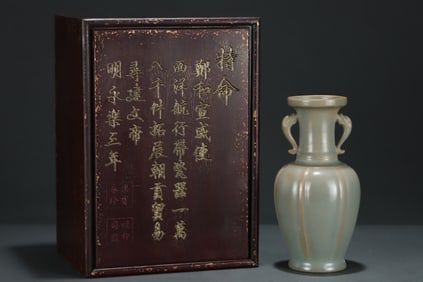 特命
鄭和宣威使
西洋航行帶瓷器一萬
八千件拓展朝貢貿易
尋讓文帝
明永樂三年